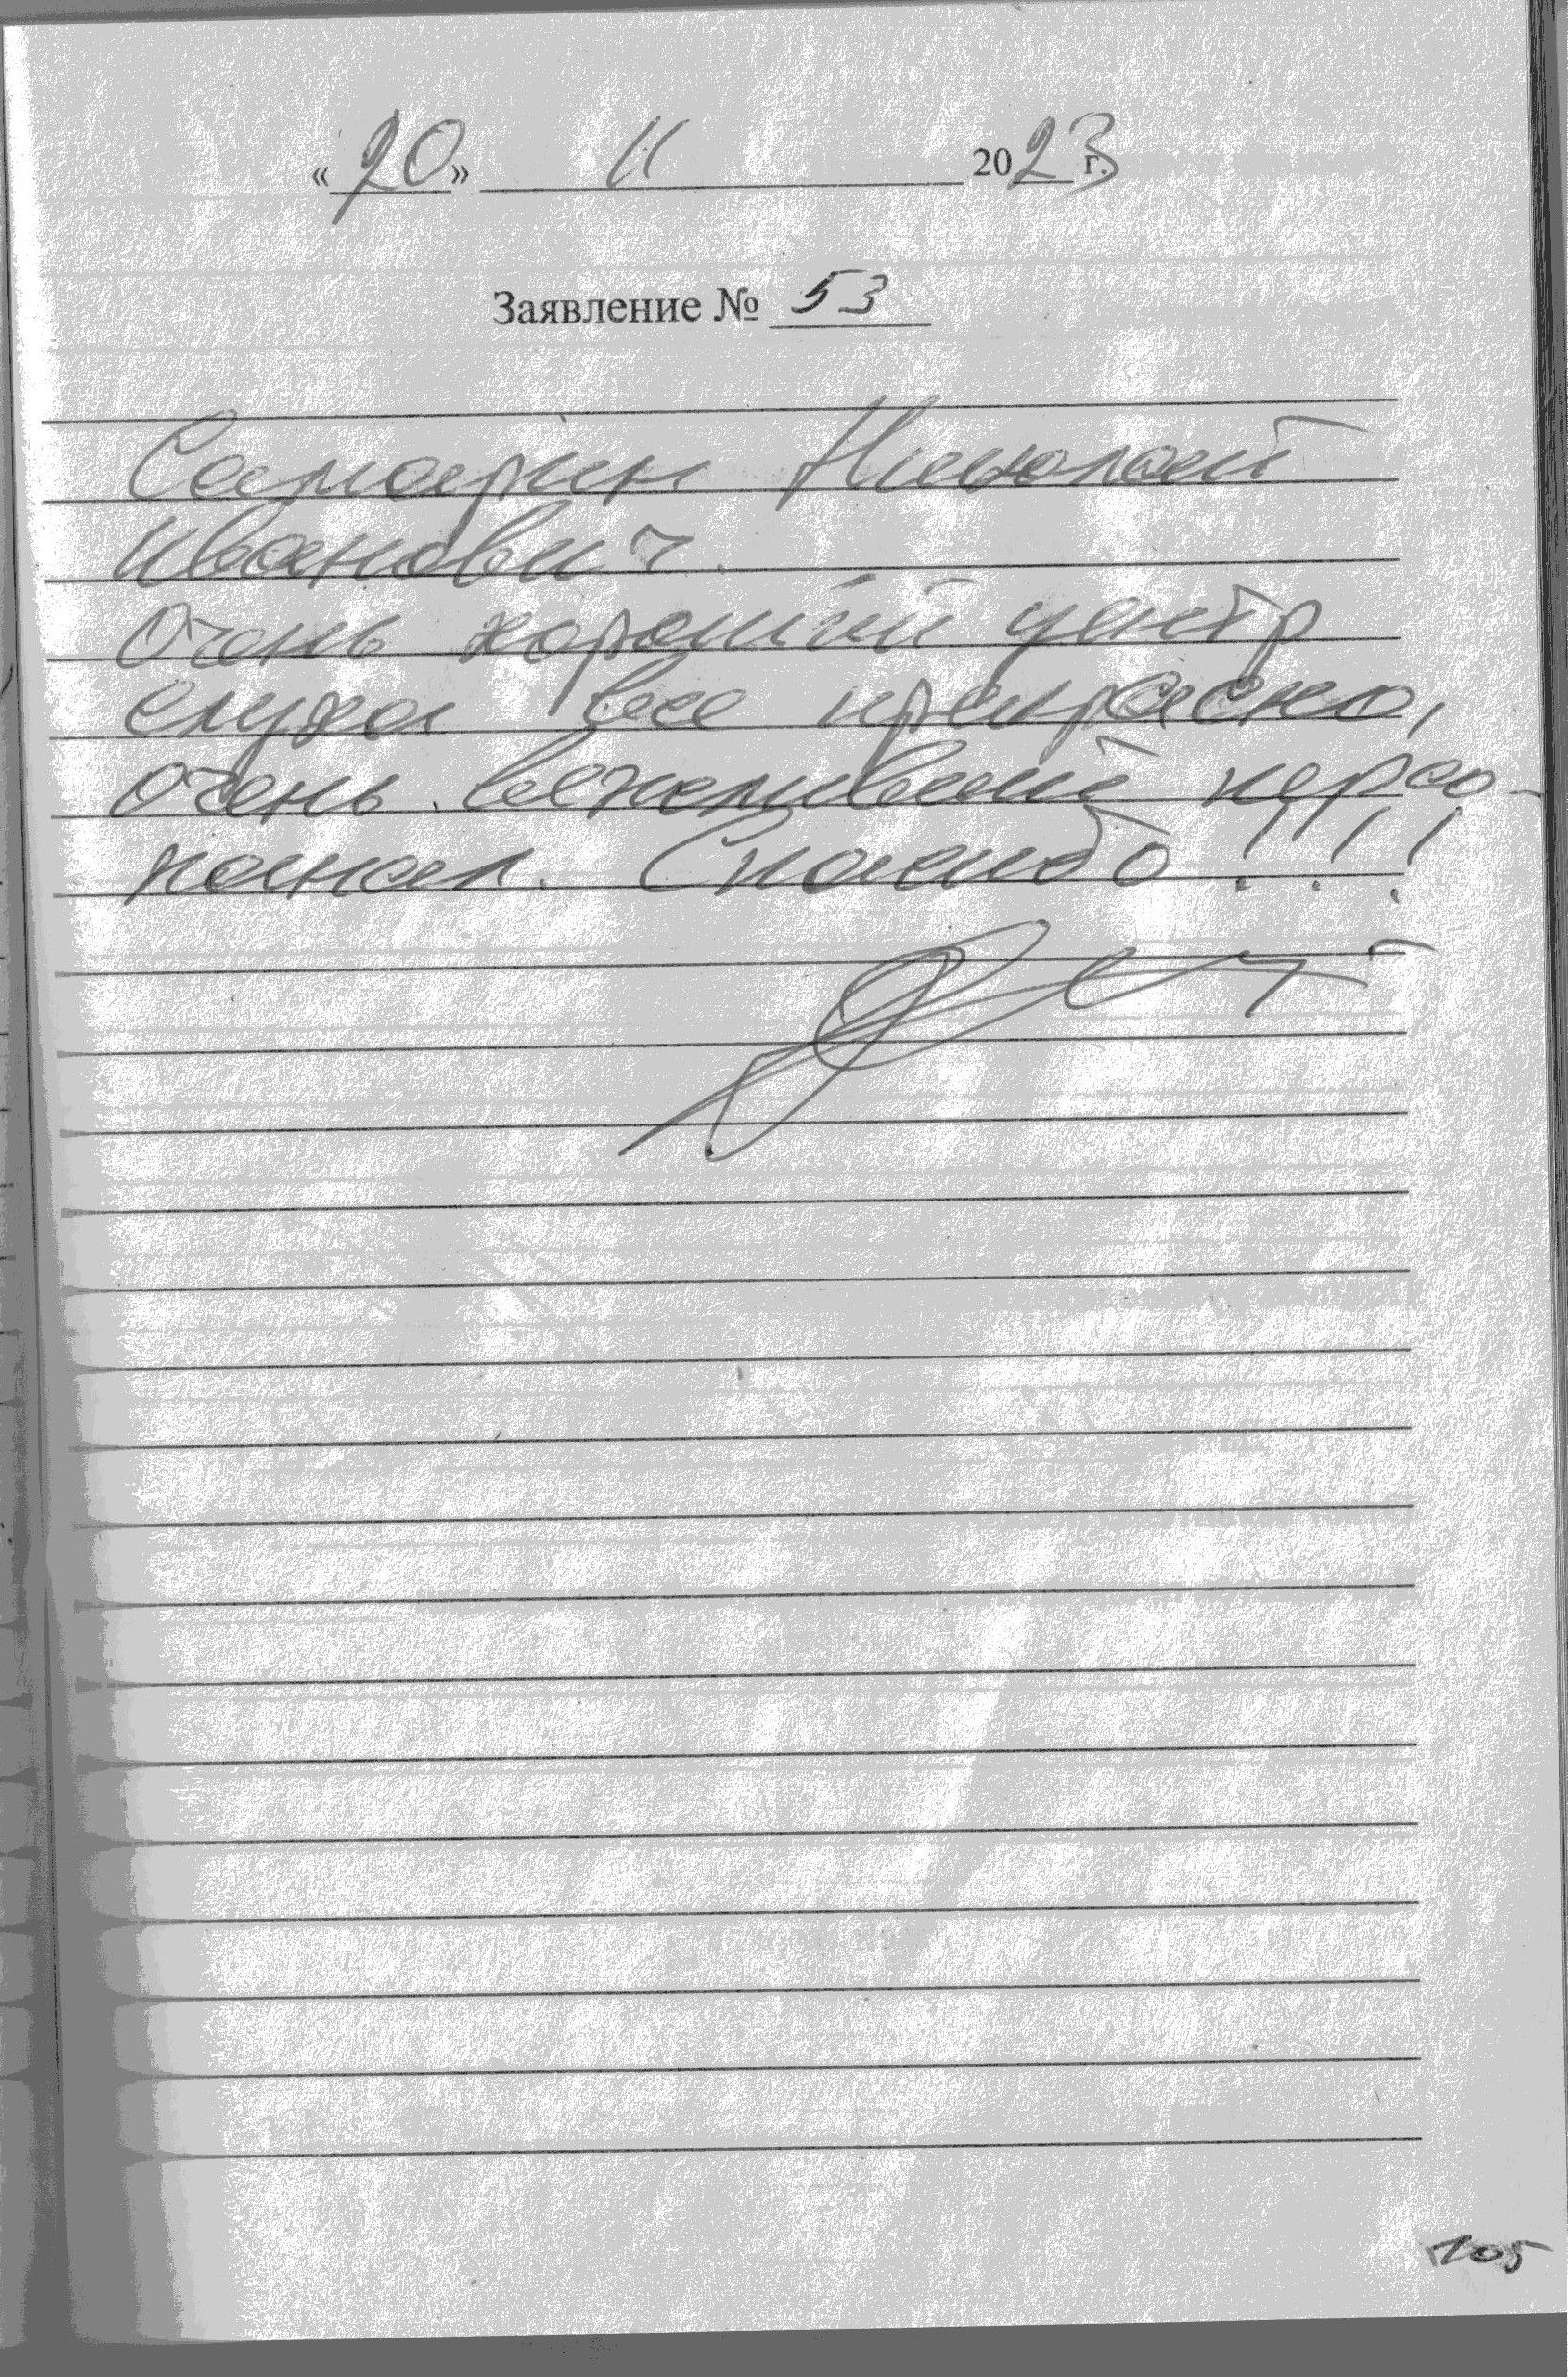 «20» 11 2023 г.
Заявление № 53
Самарин Николай
Иванович.
Очень хороший центр
слуха все прекрасно,
очень вежливый персо-
нонал. Спасибо!!!
105